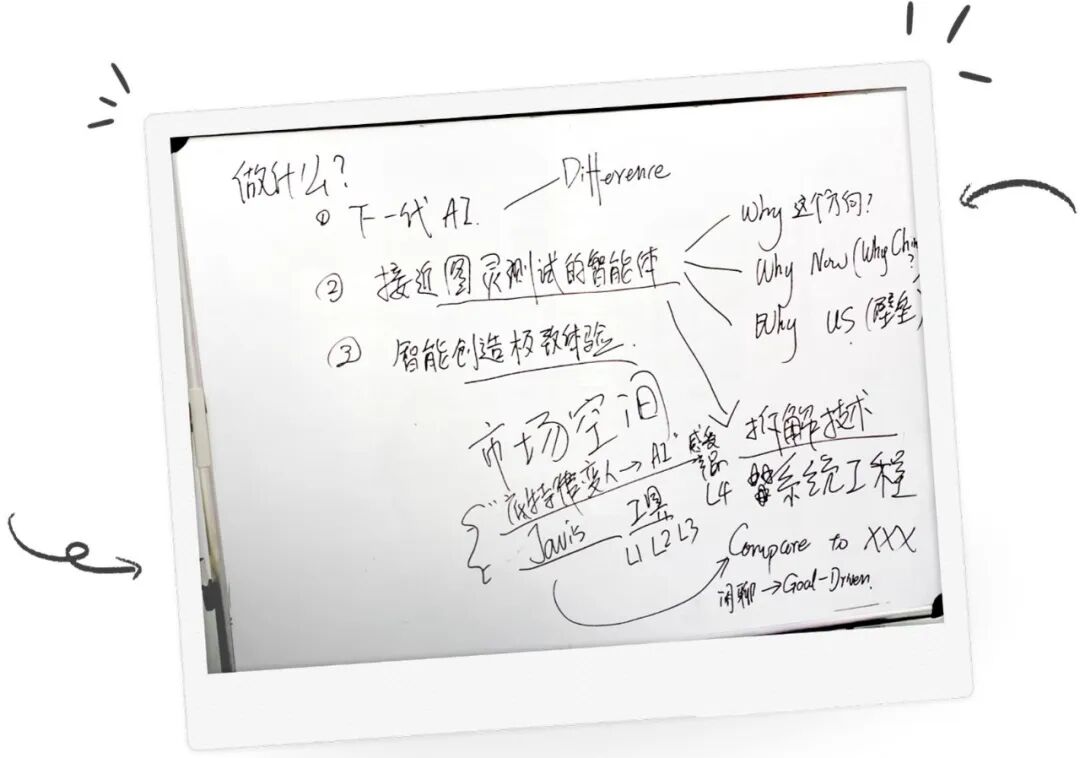 做什么?
① 下一代 AI.
Difference
② 接近图灵测试的智能体
Why 这个方向?
Why Now (Why Ch
Why US (壁垒)
③ 智能创造极致体验.
市场空间
变人→AI
感受
L4
Javis
工具
L1 L2 L3
拆解技术
系统工程
Compare to XXX
闲聊→Goal-Driven.